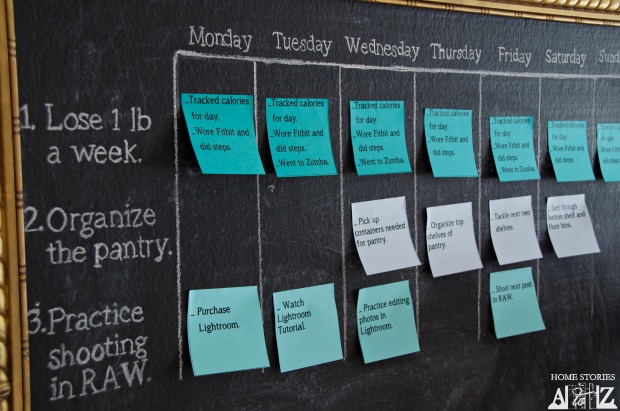 Monday Tuesday Wednesday Thursday Friday Saturday
1. Lose 1 lb
a week.
_Tracked calories
for day.
_Wore Fitbit and
did steps.
_Tracked calories
for day.
_Wore Fitbit and
did steps.
_Went to Zumba.
_Tracked calories
for day.
_Wore Fitbit and
did steps.
_Went to Zumba.
_Tracked calories
for day.
_Wore Fitbit and
did steps.
_Tracked calories
for day.
_Wore Fitbit and
did steps.
_Went to Zumba.
_Tracked calories
for day.
_Wore Fitbit and
did steps.
2. Organize
the pantry.
_ Pick up
containers needed
for pantry.
_ Organize top
shelves of
pantry.
_ Tackle next two
shelves.
_ Sort through
bottom shelf and
floor bins.
3. Practice
shooting
in RAW.
_ Purchase
Lightroom.
_ Watch
Lightroom
Tutorial.
_ Practice editing
photos in
Lightroom.
_ Shoot next post
in RAW.
HOME STORIES
A to Z